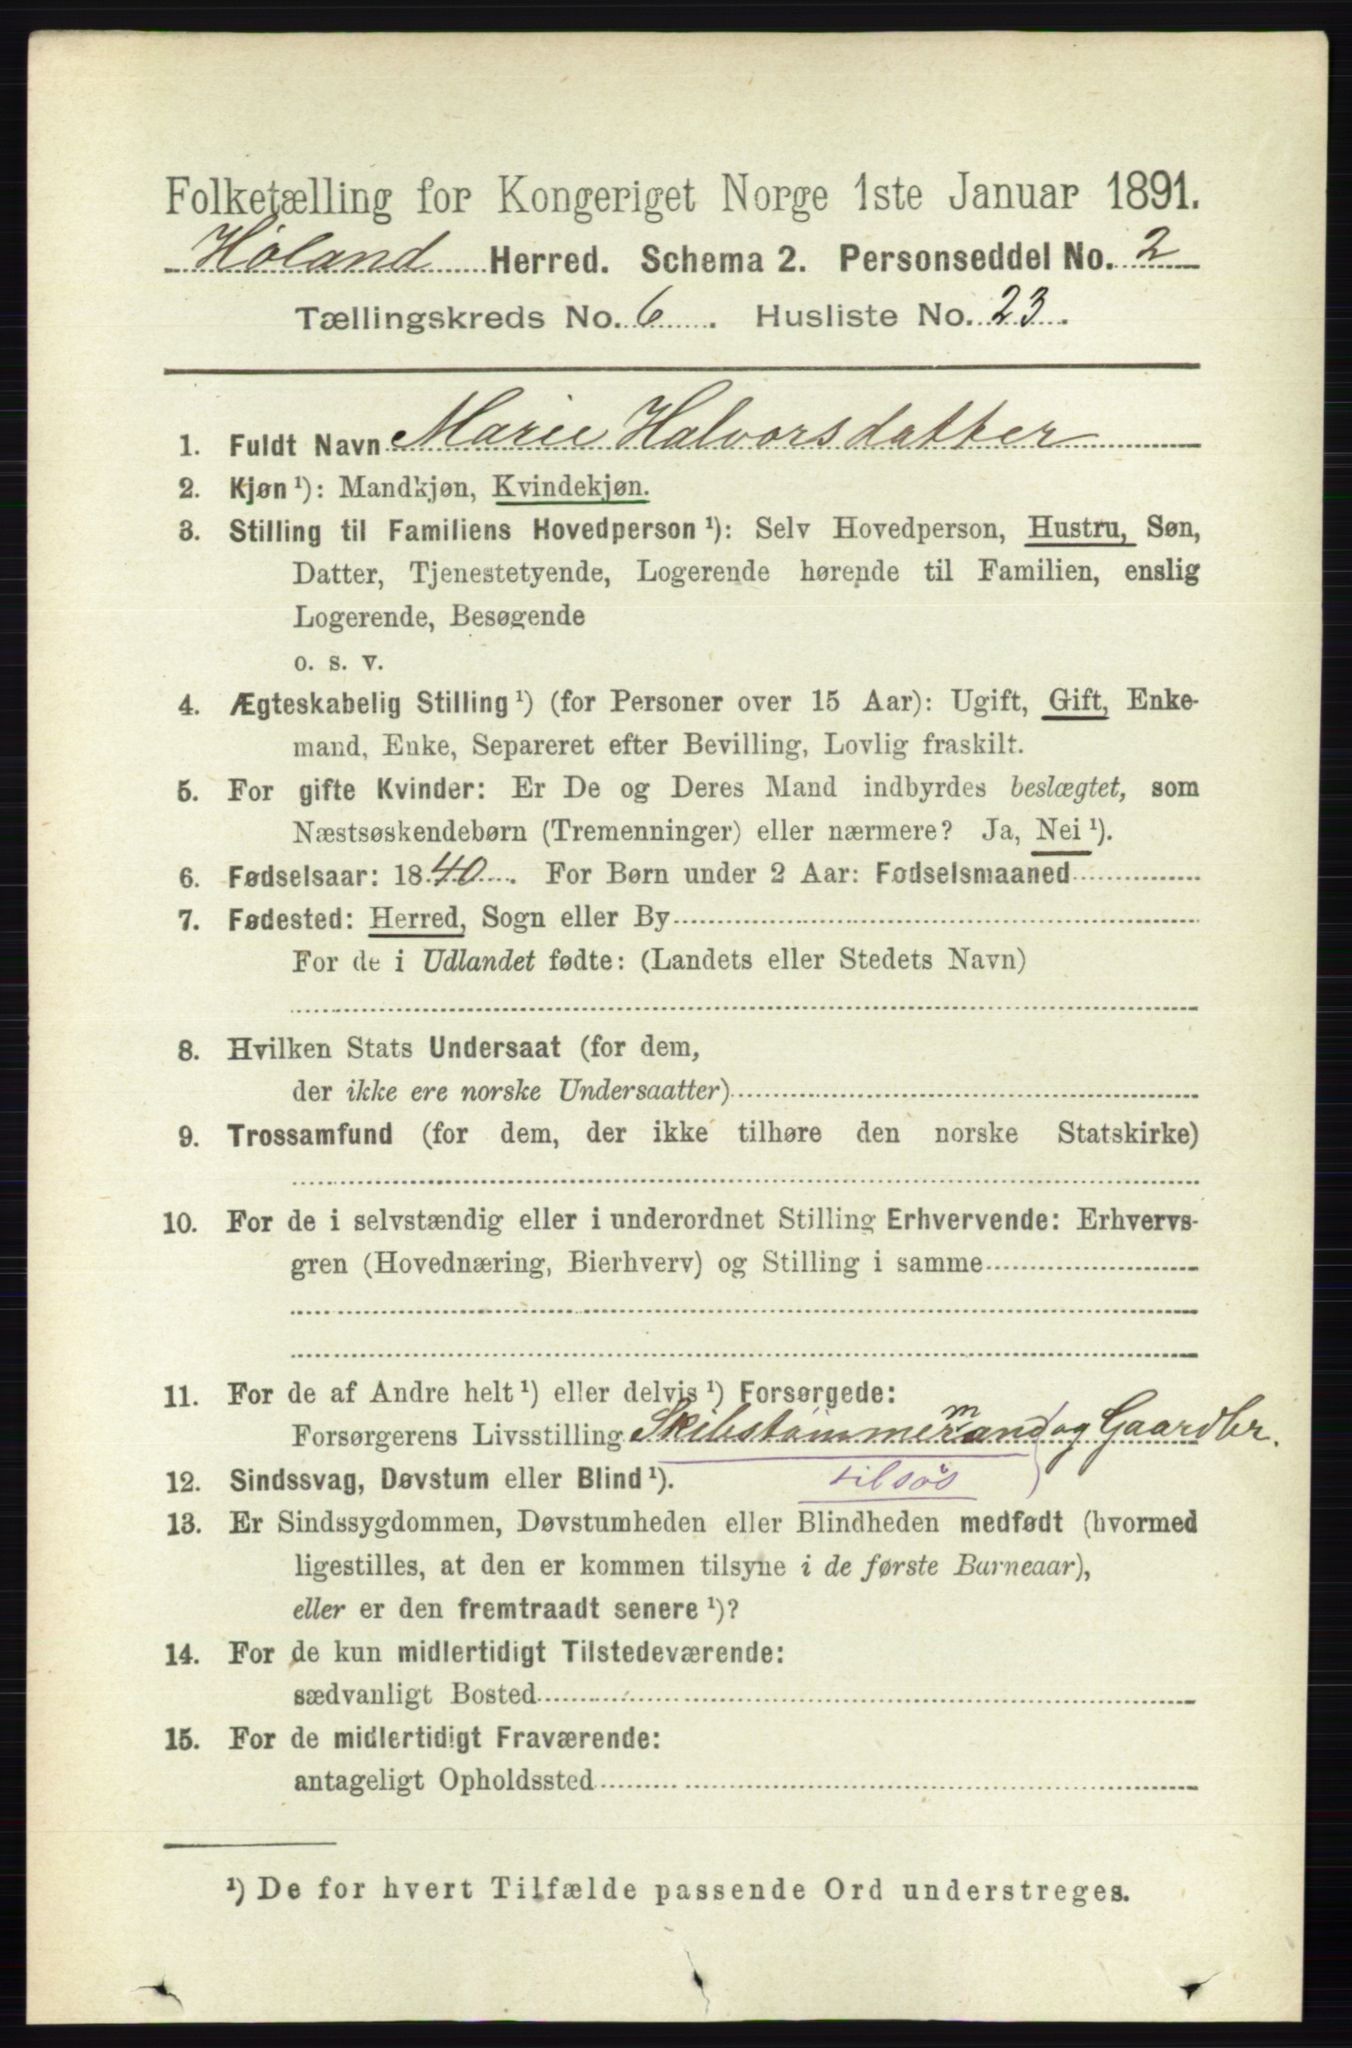 Folketælling for Kongeriget Norge 1ste Januar 1891.
Høland Herred. Schema 2. Personseddel No. 2
Tællingskreds No. 6. Husliste No. 23.
1. Fuldt Navn Marie Halvorsdatter
2. Kjøn ¹): Mandkjøn, Kvindekjøn.
3. Stilling til Familiens Hovedperson ¹): Selv Hovedperson, Hustru, Søn,
Datter, Tjenestetyende, Logerende hørende til Familien, enslig
Logerende, Besøgende
o. s. v.
4. Ægteskabelig Stilling ¹) (for Personer over 15 Aar): Ugift, Gift, Enke-
mand, Enke, Separeret efter Bevilling, Lovlig fraskilt.
5. For gifte Kvinder: Er De og Deres Mand indbyrdes beslægtet, som
Næstsøskendebørn (Tremenninger) eller nærmere? Ja, Nei ¹).
6. Fødselsaar: 1840. For Børn under 2 Aar: Fødselsmaaned
7. Fødested: Herred, Sogn eller By
For de i Udlandet fødte: (Landets eller Stedets Navn)
8. Hvilken Stats Undersaat (for dem,
der ikke ere norske Undersaatter)
9. Trossamfund (for dem, der ikke tilhøre den norske Statskirke)
10. For de i selvstændig eller i underordnet Stilling Erhvervende: Erhvervs-
gren (Hovednæring, Bierhverv) og Stilling i samme
11. For de af Andre helt ¹) eller delvis ¹) Forsørgede:
Forsørgerens Livsstilling Skibstømmermand og Gaardbr.
12. Sindssvag, Døvstum eller Blind ¹). tilsøs
13. Er Sindssygdommen, Døvstumheden eller Blindheden medfødt (hvormed
ligestilles, at den er kommen tilsyne i de første Barneaar),
eller er den fremtraadt senere ¹)?
14. For de kun midlertidigt Tilstedeværende:
sædvanligt Bosted
15. For de midlertidigt Fraværende:
antageligt Opholdssted
¹) De for hvert Tilfælde passende Ord understreges.